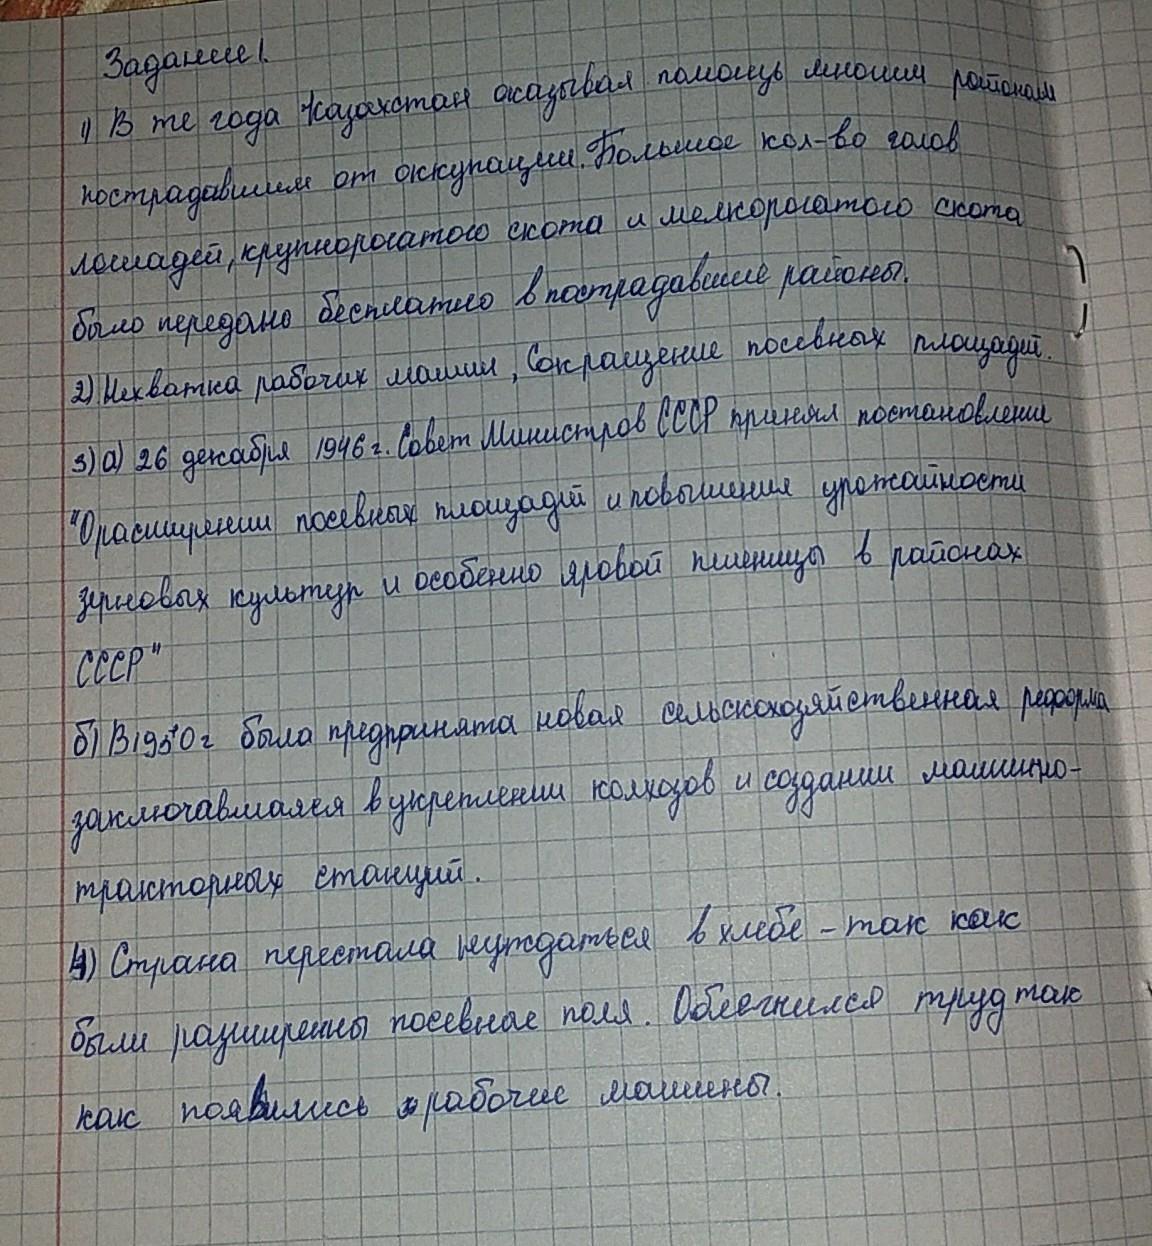 Задание 1.
1) В те года Казахстан оказывал помощь многим районам
пострадавшим от оккупации. Большое кол-во голов
лошадей, крупнорогатого скота и мелкорогатого скота
было передано бесплатно в пострадавшие районы.
2) Нехватка рабочих машин, Сокращение посевных площадей.
3) а) 26 декабря 1946 г. Совет Министров СССР принял постановление
"О расширении посевных площадей и повышения урожайности
зерновых культур и особенно яровой пшеницы в районах
СССР"
б) В 1950 г была предпринята новая сельскохозяйственная реформа
заключавшаяся в укреплении колхозов и создании машинно-
тракторных станций.
4) Страна перестала нуждаться в хлебе - так как
были разширенны посевные поля. Облегчился труд так
как появились рабочие машины.